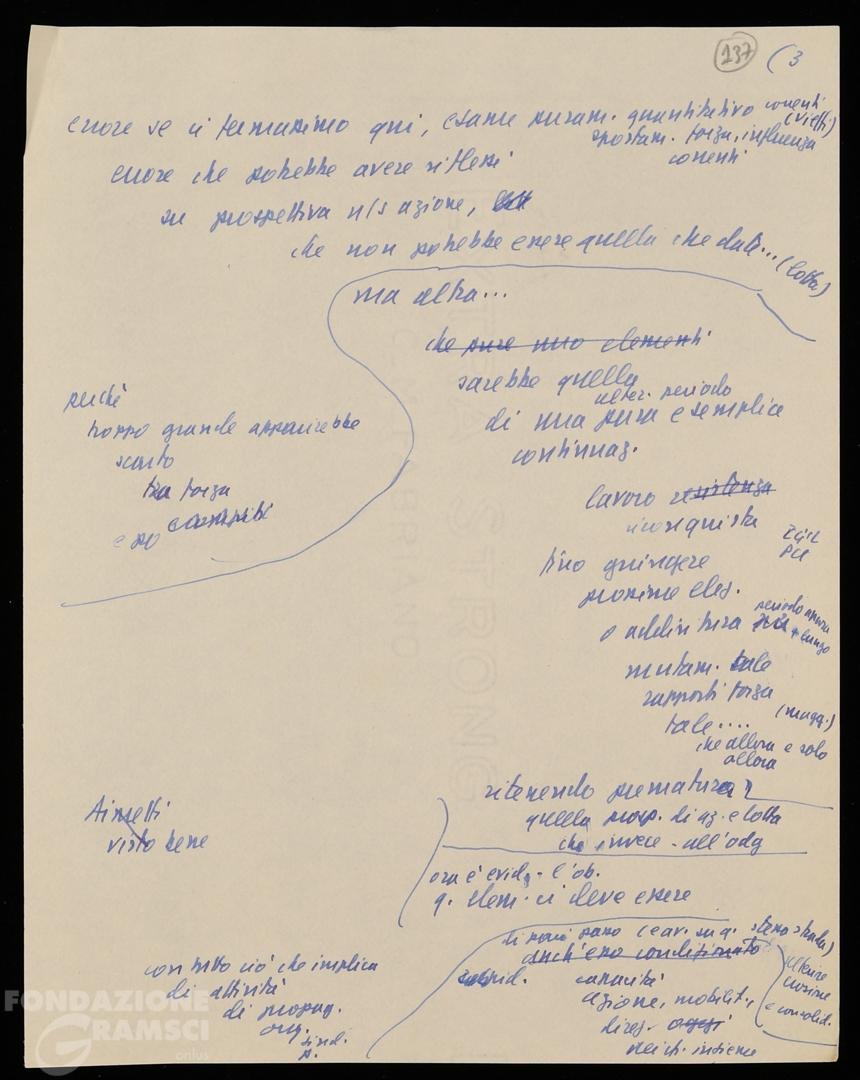 137 (3
errore se ci fermassimo qui, esame puram. quantitativo correnti (vietti)
spostam. forza, influenza
correnti
errore che potrebbe avere riflessi
su prospettiva n/s azione,
che non potrebbe essere quella che data... (lotta)
ma altra...
che pure uno elementi
sarebbe quella
ulter. periodo
di una pura e semplice
continuaz.
perché
troppo grande apparirebbe
scarto
tra forza
e compiti
lavoro resistenza
riconquista
CGIL
PCI
fino giungere
prossime elez.
o addirittura periodo ancora
+ lungo
mutam. tale
rapporti forza
tale.... (magg.)
che allora e solo
allora
ritenendo prematura
quella prosp. di az. e lotta
che invece - all'odg
Ainsetti
visto bene
ora è evid. - l'ob.
q. elem. ci deve essere
stessa strada)
anch'esso condizionato
capacità
azione, mobilit.,
direz. oggi
insieme
ulteriore
e consolid.
con tutto ciò che implica
di attività
di propag.
org.
sind.
p.
FONDAZIONE
GRAMSCI
onlus